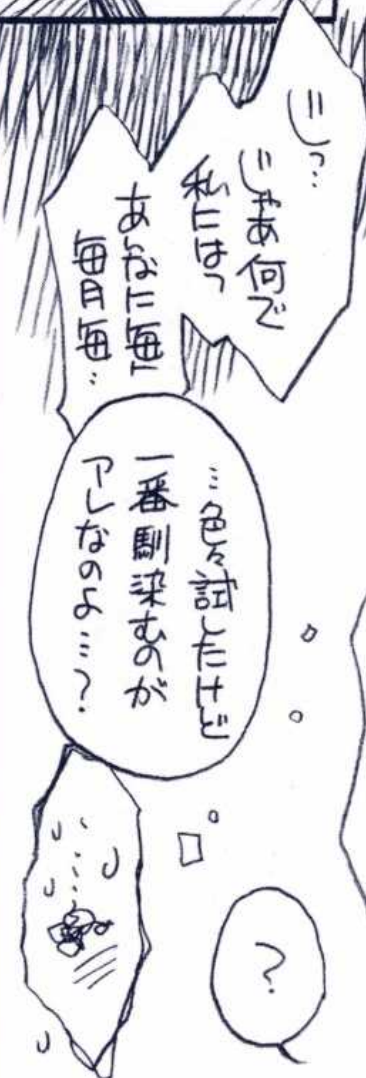 じっ…
じゃあ何で
私にはっ
あんなに毎
毎月毎…
…色々試したけど
一番馴染むのが
アレなのよ…?
?